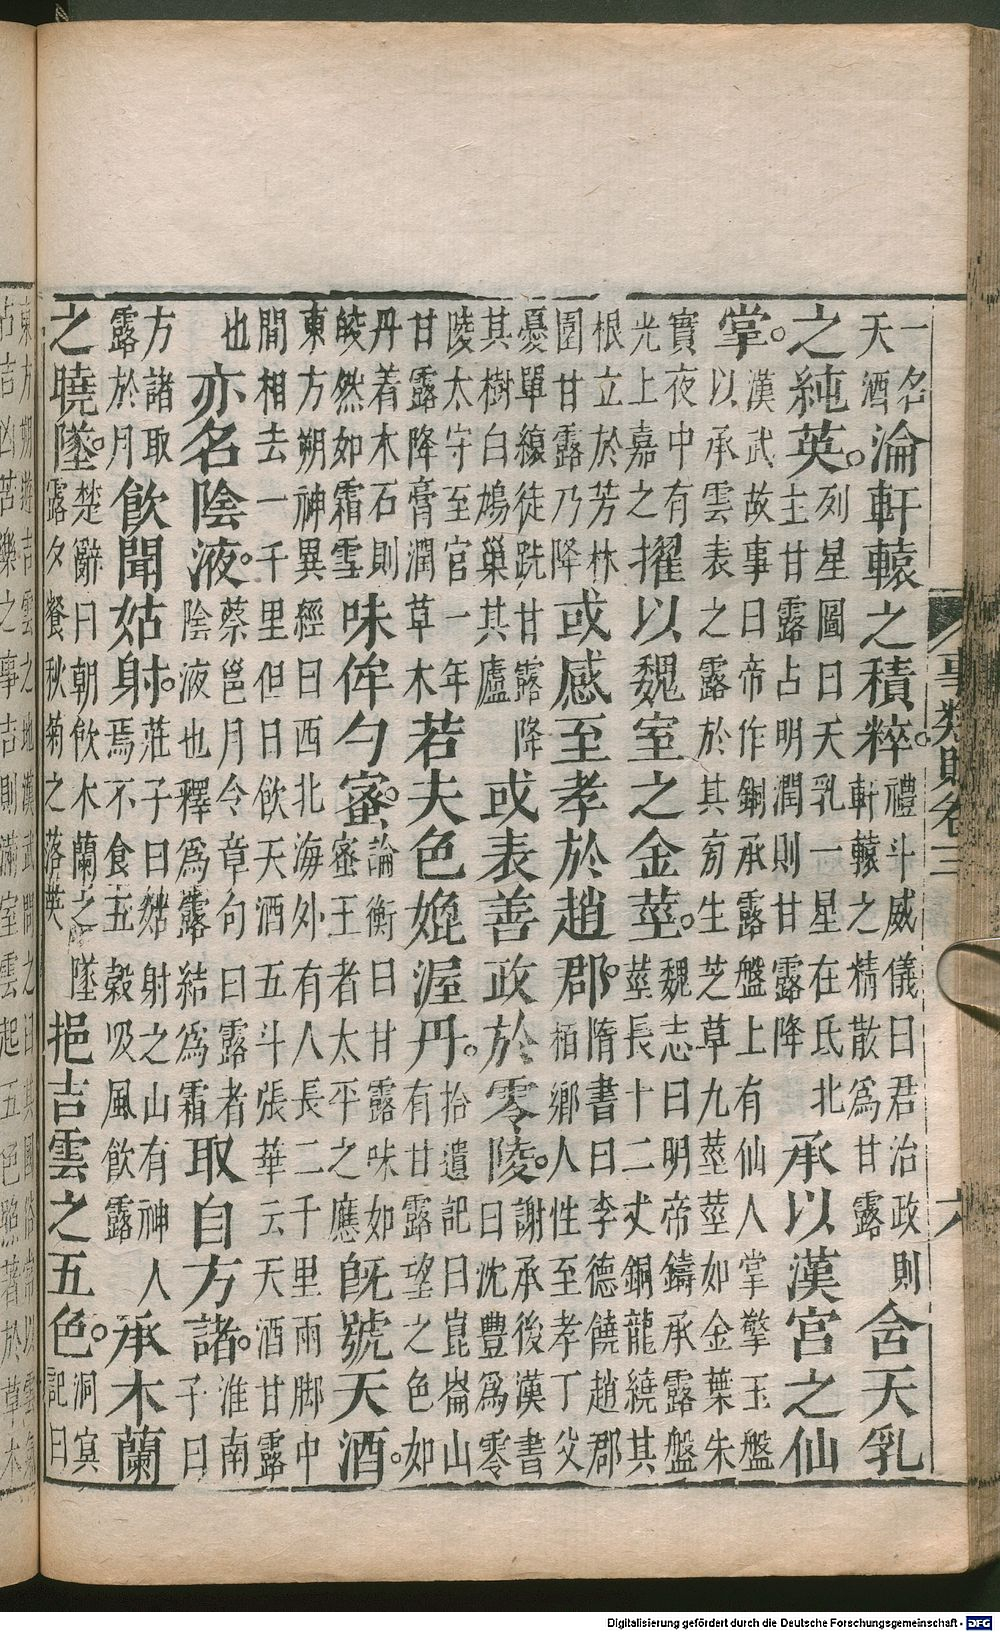 事類賦卷三　六
一名
天酒
淪軒轅之積粹。
禮斗威儀曰君治政則
軒轅之精散為甘露
含天乳
之純英。
列星圖曰天乳一星在氐北
主甘露占明潤則甘露降
承以漢宮之仙
掌。
漢武故事曰帝作銅承露盤上有仙人掌擎玉盤
以承雲表之露於其旁生芝草九莖莖如金葉朱
實夜中有
光上嘉之
擢以魏室之金莖。
魏志曰明帝鑄承露盤
莖長十二丈銅龍繞其
根立於芳林
園甘露乃降
或感至孝於趙郡。
隋書曰李德饒趙郡
栢鄉人性至孝丁父
憂單縗徒跣甘露降
其樹白鳩巢其廬
或表善政於零陵。
謝承後漢書
曰沈豐為零
陵太守至官一年
甘露降膏潤草木
若夫色媲渥丹。
拾遺記曰崑崙山
有甘露望之色如
丹着木石則
皎然如霜雪
味侔勺蜜。
論衡曰甘露味如
蜜王者太平之應
既號天酒。
東方朔神異經曰西北海外有人長二千里兩脚中
間相去一千里但日飲天酒五斗張華云天酒甘露
也
亦名陰液。
蔡邕月令章句曰露者
陰液也釋為露結為霜
取自方諸。
淮南
子曰
方諸取
露於月
飲聞姑射。
莊子曰射之山有神人
焉不食五穀吸風飲露
承木蘭
之曉墜。
楚辭曰朝飲木蘭之墜
露夕餐秋菊之落英
挹吉雲之五色。
洞冥
記曰
東方朔遊吉雲之地漢武問之曰其國俗常以雲氣
吉凶樂之事吉則滿室雲起五色照著於草木
Digitalisierung gefördert durch die Deutsche Forschungsgemeinschaft - DFG